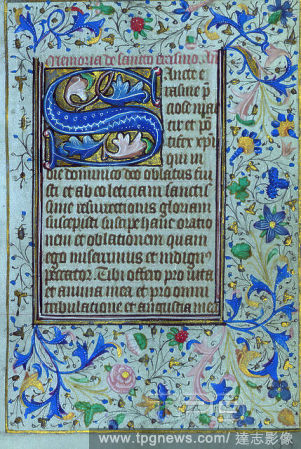 Memoria de sancto erasmo. An
Sancte e
rasme p
ciose mar
tir et po
tifex xpi
qui in
die dominico deo oblatus fui
sti et ab eo leticiam sancti
sime resurrectionis gloriam
suscepisti suscipe hanc oratio
nem et oblationem quam
ego miserrimus et indignus
peccator. Tibi offero pro vita
et anima mea. et pro omni
tribulatione et angustia me
www.tpgnews.com/ 達志影像